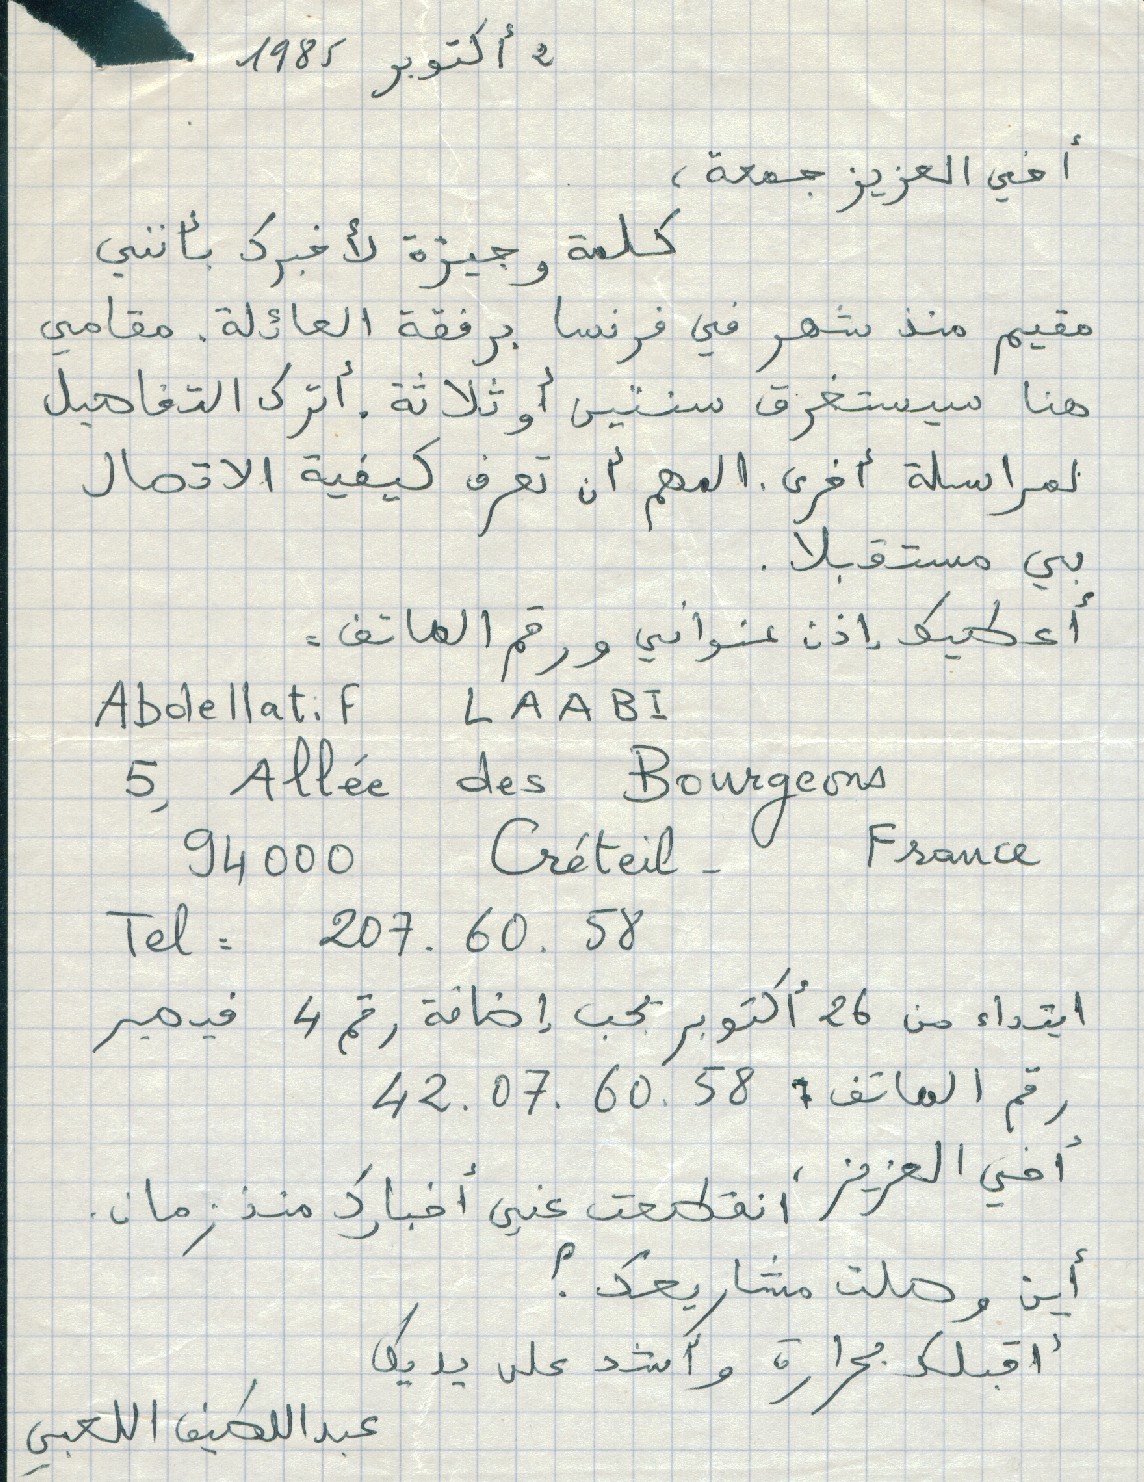 2 أكتوبر 1985
أخي العزيز جمعة،
كلمة وجيزة لأخبرك بأنني
مقيم منذ شهر في فرنسا برفقة العائلة. مقامي
هنا سيستغرق سنتين أو ثلاثة. أترك التفاصيل
لمراسلة أخرى. المهم أن تعرف كيفية الاتصال
بي مستقبلا.
أعطيك إذن عنواني ورقم الهاتف =
Abdellatif LAABI
5, Allée des Bourgeons
94000 Créteil - France
Tel = 207. 60. 58
ابتداء من 26 أكتوبر يجب إضافة رقم 4 فيصير
رقم الهاتف : 42. 07. 60. 58
أخي العزيز،
انقطعت عني أخبارك منذ زمان.
أين وصلت مشاريعك ؟
أقبلك بحرارة وأشد على يديك
عبد اللطيف اللعبي